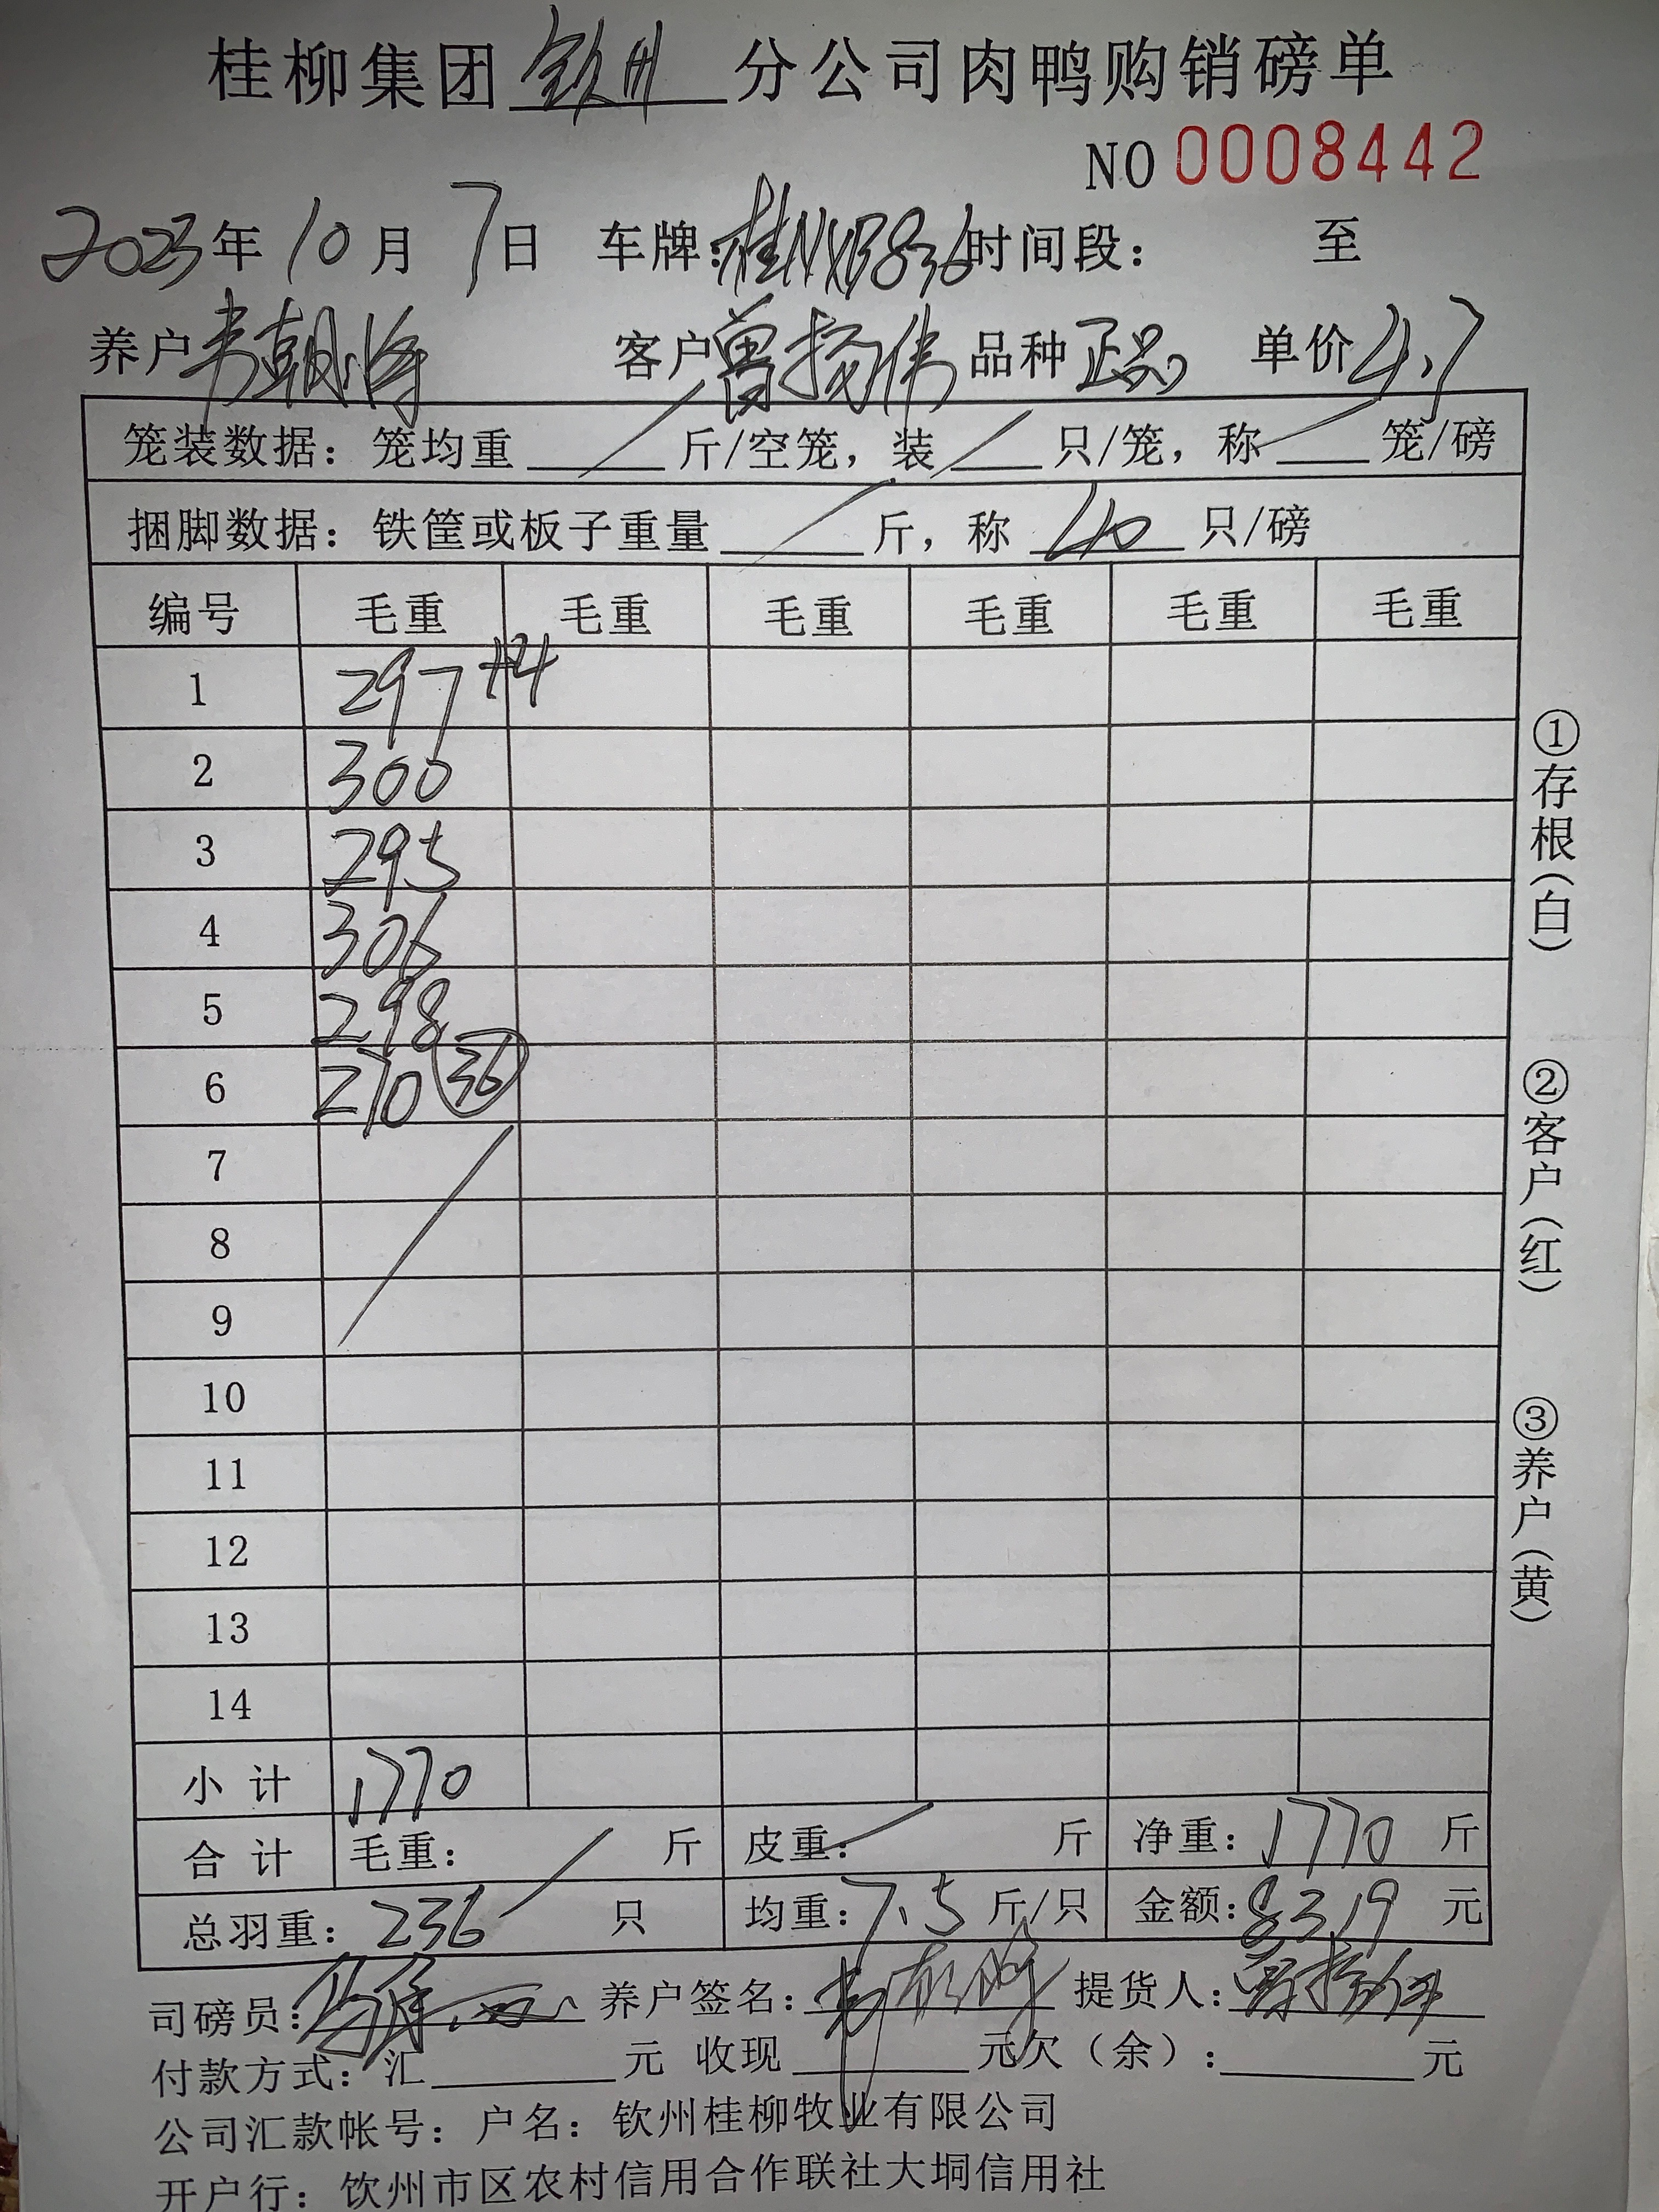 桂柳集团 钦州 分公司肉鸭购销磅单
NO 0008442
2023年 10月 7日 车牌:桂NXB836 时间段: 至
养户 韦朝 客户 曾扬伟 品种 正品 单价 4.7
笼装数据: 笼均重 斤/空笼, 装 只/笼, 称 笼/磅
捆脚数据: 铁筐或板子重量 斤, 称 40 只/磅
编号 毛重 毛重 毛重 毛重 毛重 毛重
1 297 +4
2 300
3 295
4 306
5 298
6 270 36
7
8
9
10
11
12
13
14
小计 1770
合计 毛重: 斤 皮重: 斤 净重: 1770 斤
总羽重: 236 只 均重: 7.5 斤/只 金额: 8319 元
司磅员: 养户签名: 提货人: 曾扬伟
付款方式: 汇 元 收现 元欠(余): 元
公司汇款帐号: 户名: 钦州桂柳牧业有限公司
开户行: 钦州市区农村信用合作联社大垌信用社
①存根(白)
②客户(红)
③养户(黄)